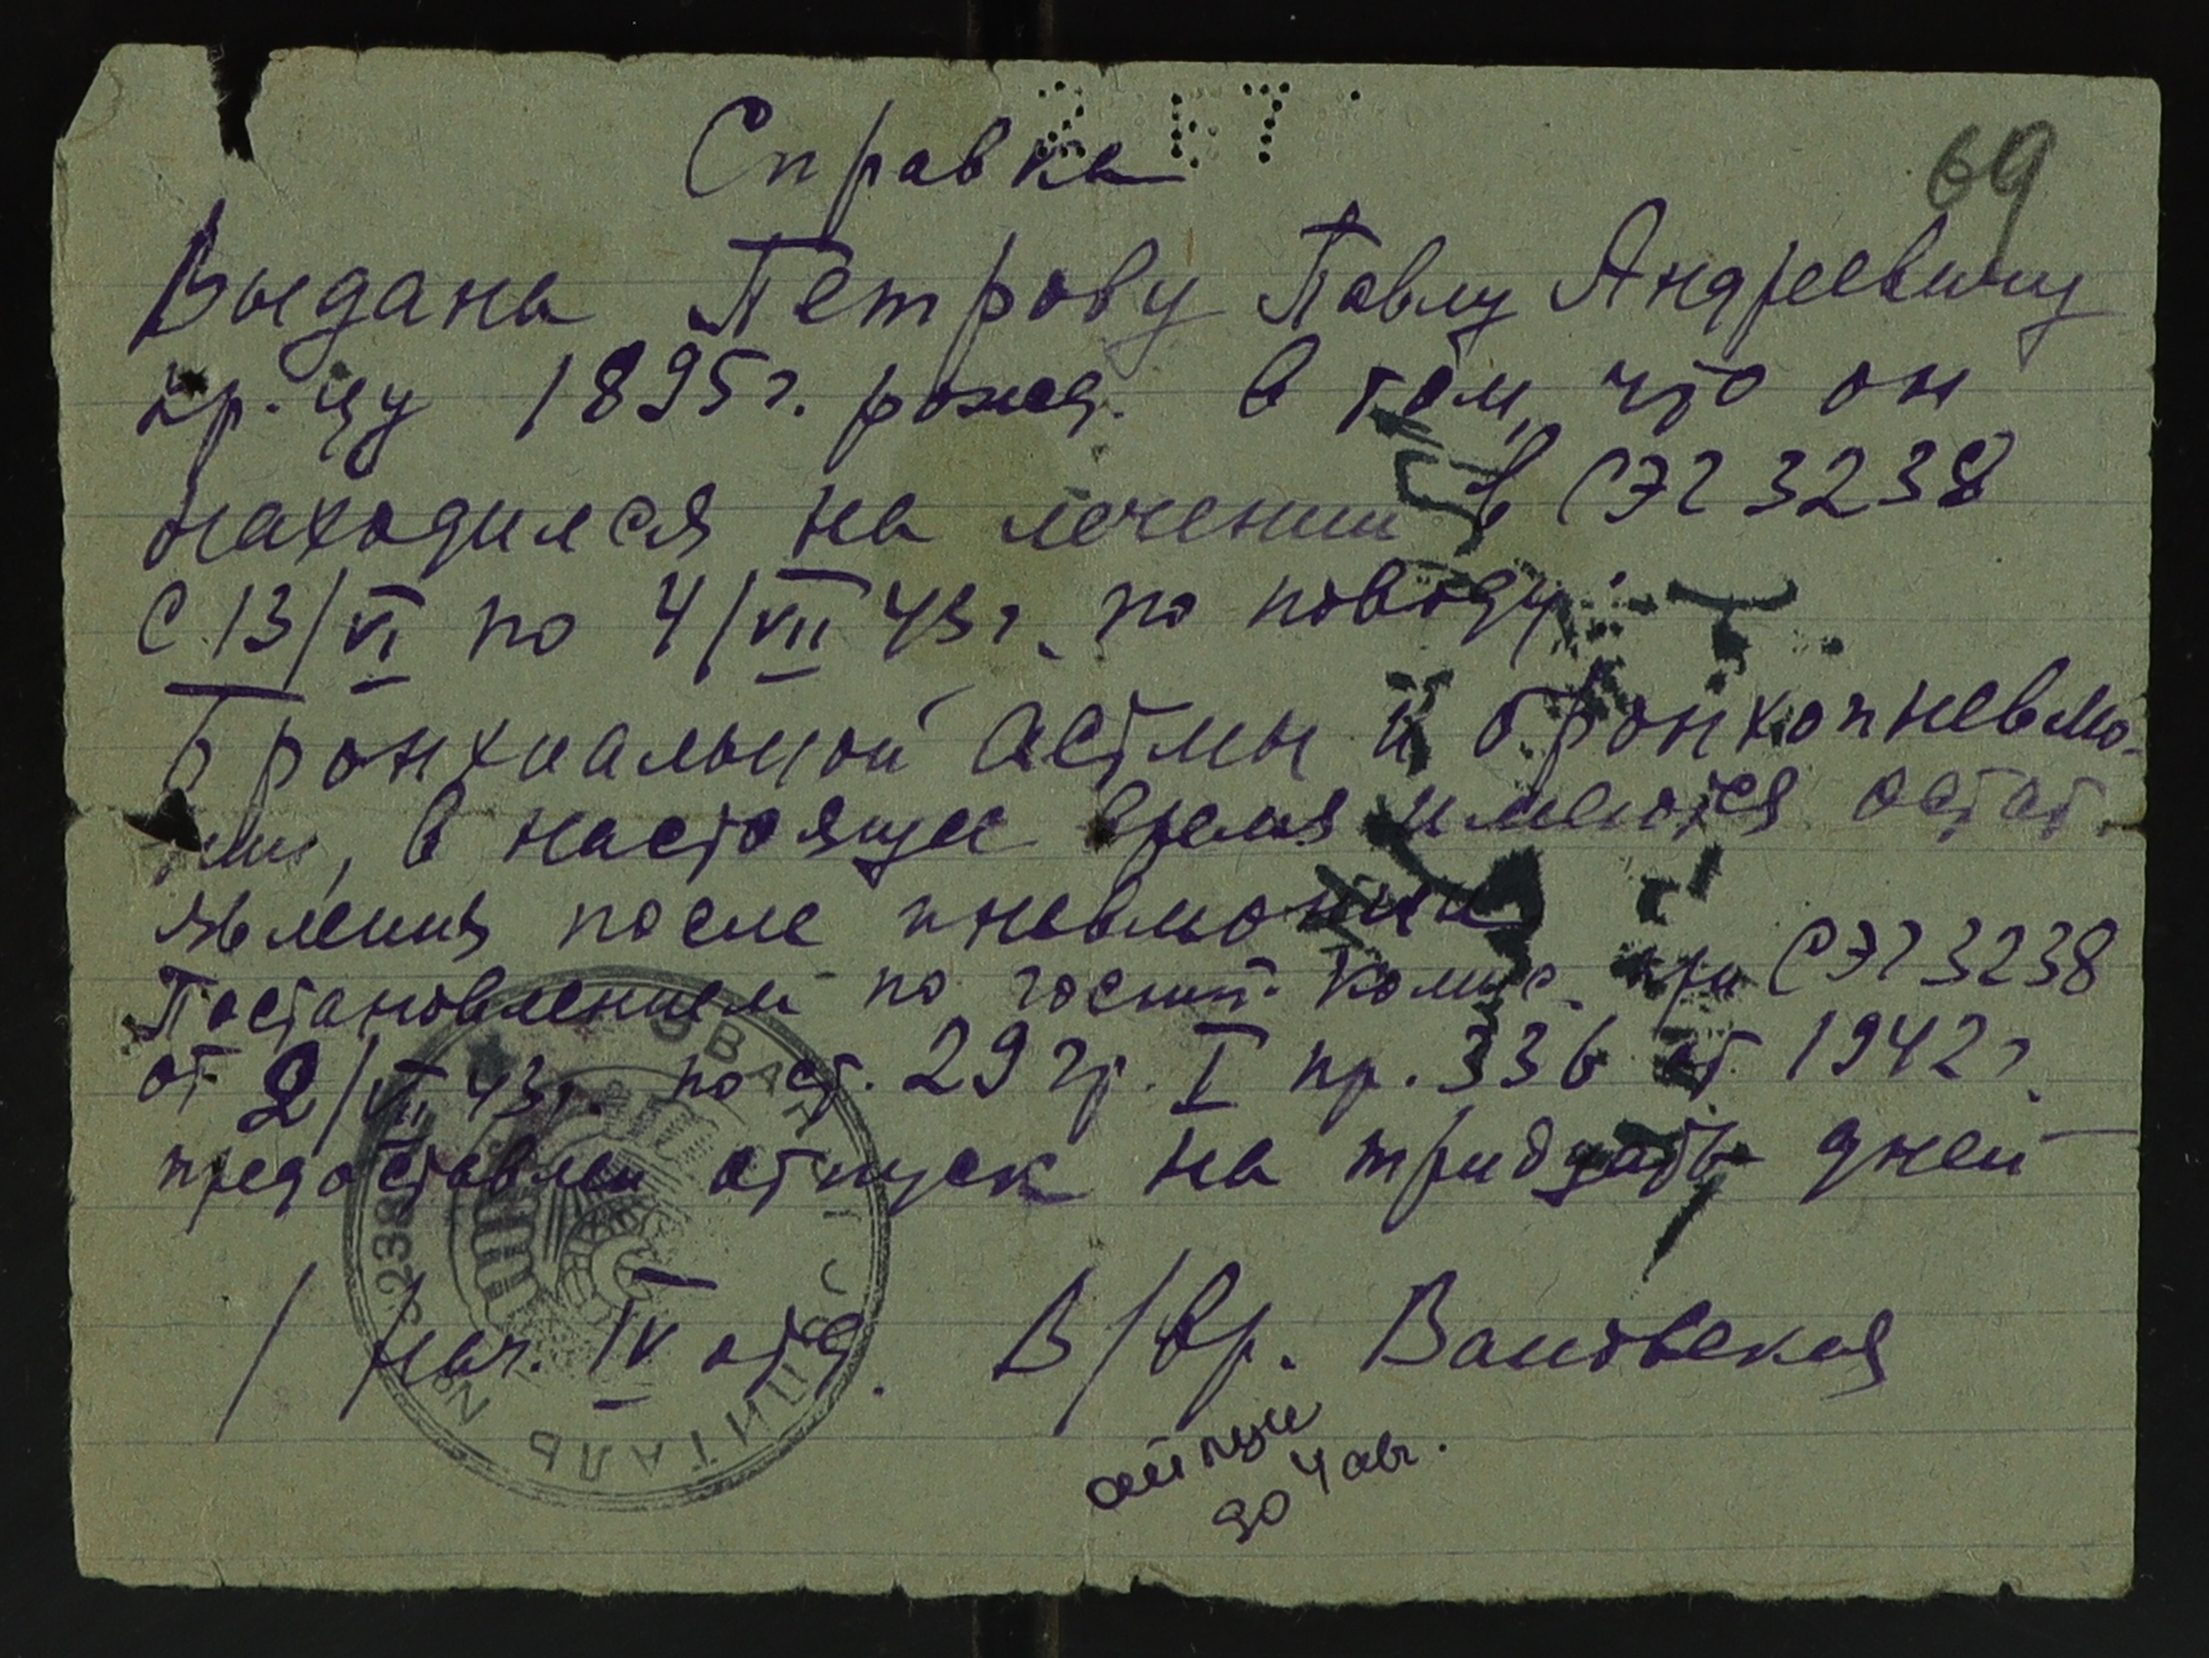 69
Справка
Выдана Петрову Павлу Андреевичу
кр-цу 1895г. рожд. в том, что он
находился на лечении в СЭГ 3238
С 13/VI по 4/VII 43г. по поводу:
Бронхиальной астмы и бронхопневмо-
нии, в настоящее время имеются остат.
явления после пневмонии
Постановлением по госпит. комис. при СЭГ 3238
от 2/VII 43г. по ст. 29 гр. I пр. 336 от 1942г.
предоставлен отпуск на тридцать дней
/ Нач. IV отд. В/вр.
до 4 авг.
ГОСПИТАЛЬ № 3238